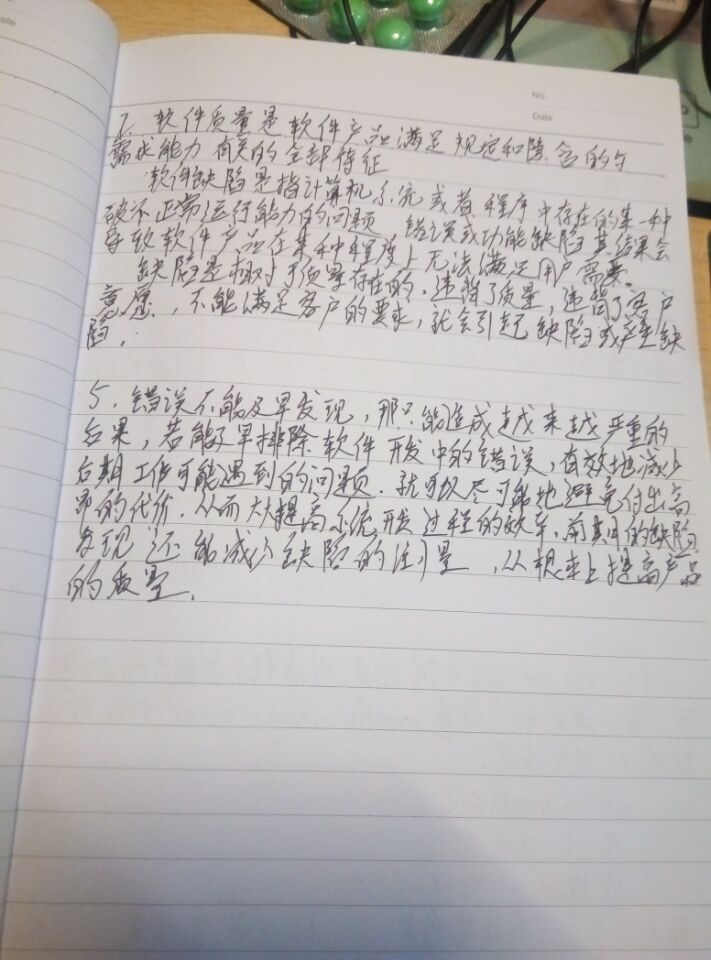 No.
Date
Date
2. 软件质量是软件产品满足规定和隐含的与
需求能力有关的全部特征
软件缺陷是指计算机系统或者程序中存在的某一种
破坏正常运行能力的问题、错误或功能缺陷其结果会
导致软件产品在某种程度上无法满足用户需要。
缺陷是相对于质量存在的,违背了质量,违背了客户
意愿,不能满足客户的要求,就会引起缺陷或产生缺
陷.
5. 错误不能及早发现,那只能造成越来越严重的
后果,若能及早排除软件开发中的错误,有效地减少
后期工作可能遇到的问题.就可以尽可能地避免付出高
昂的代价.从而大大提高系统开发过程的效率,前期的缺陷
发现还能减少缺陷的注入量,从根本上提高产品
的质量.